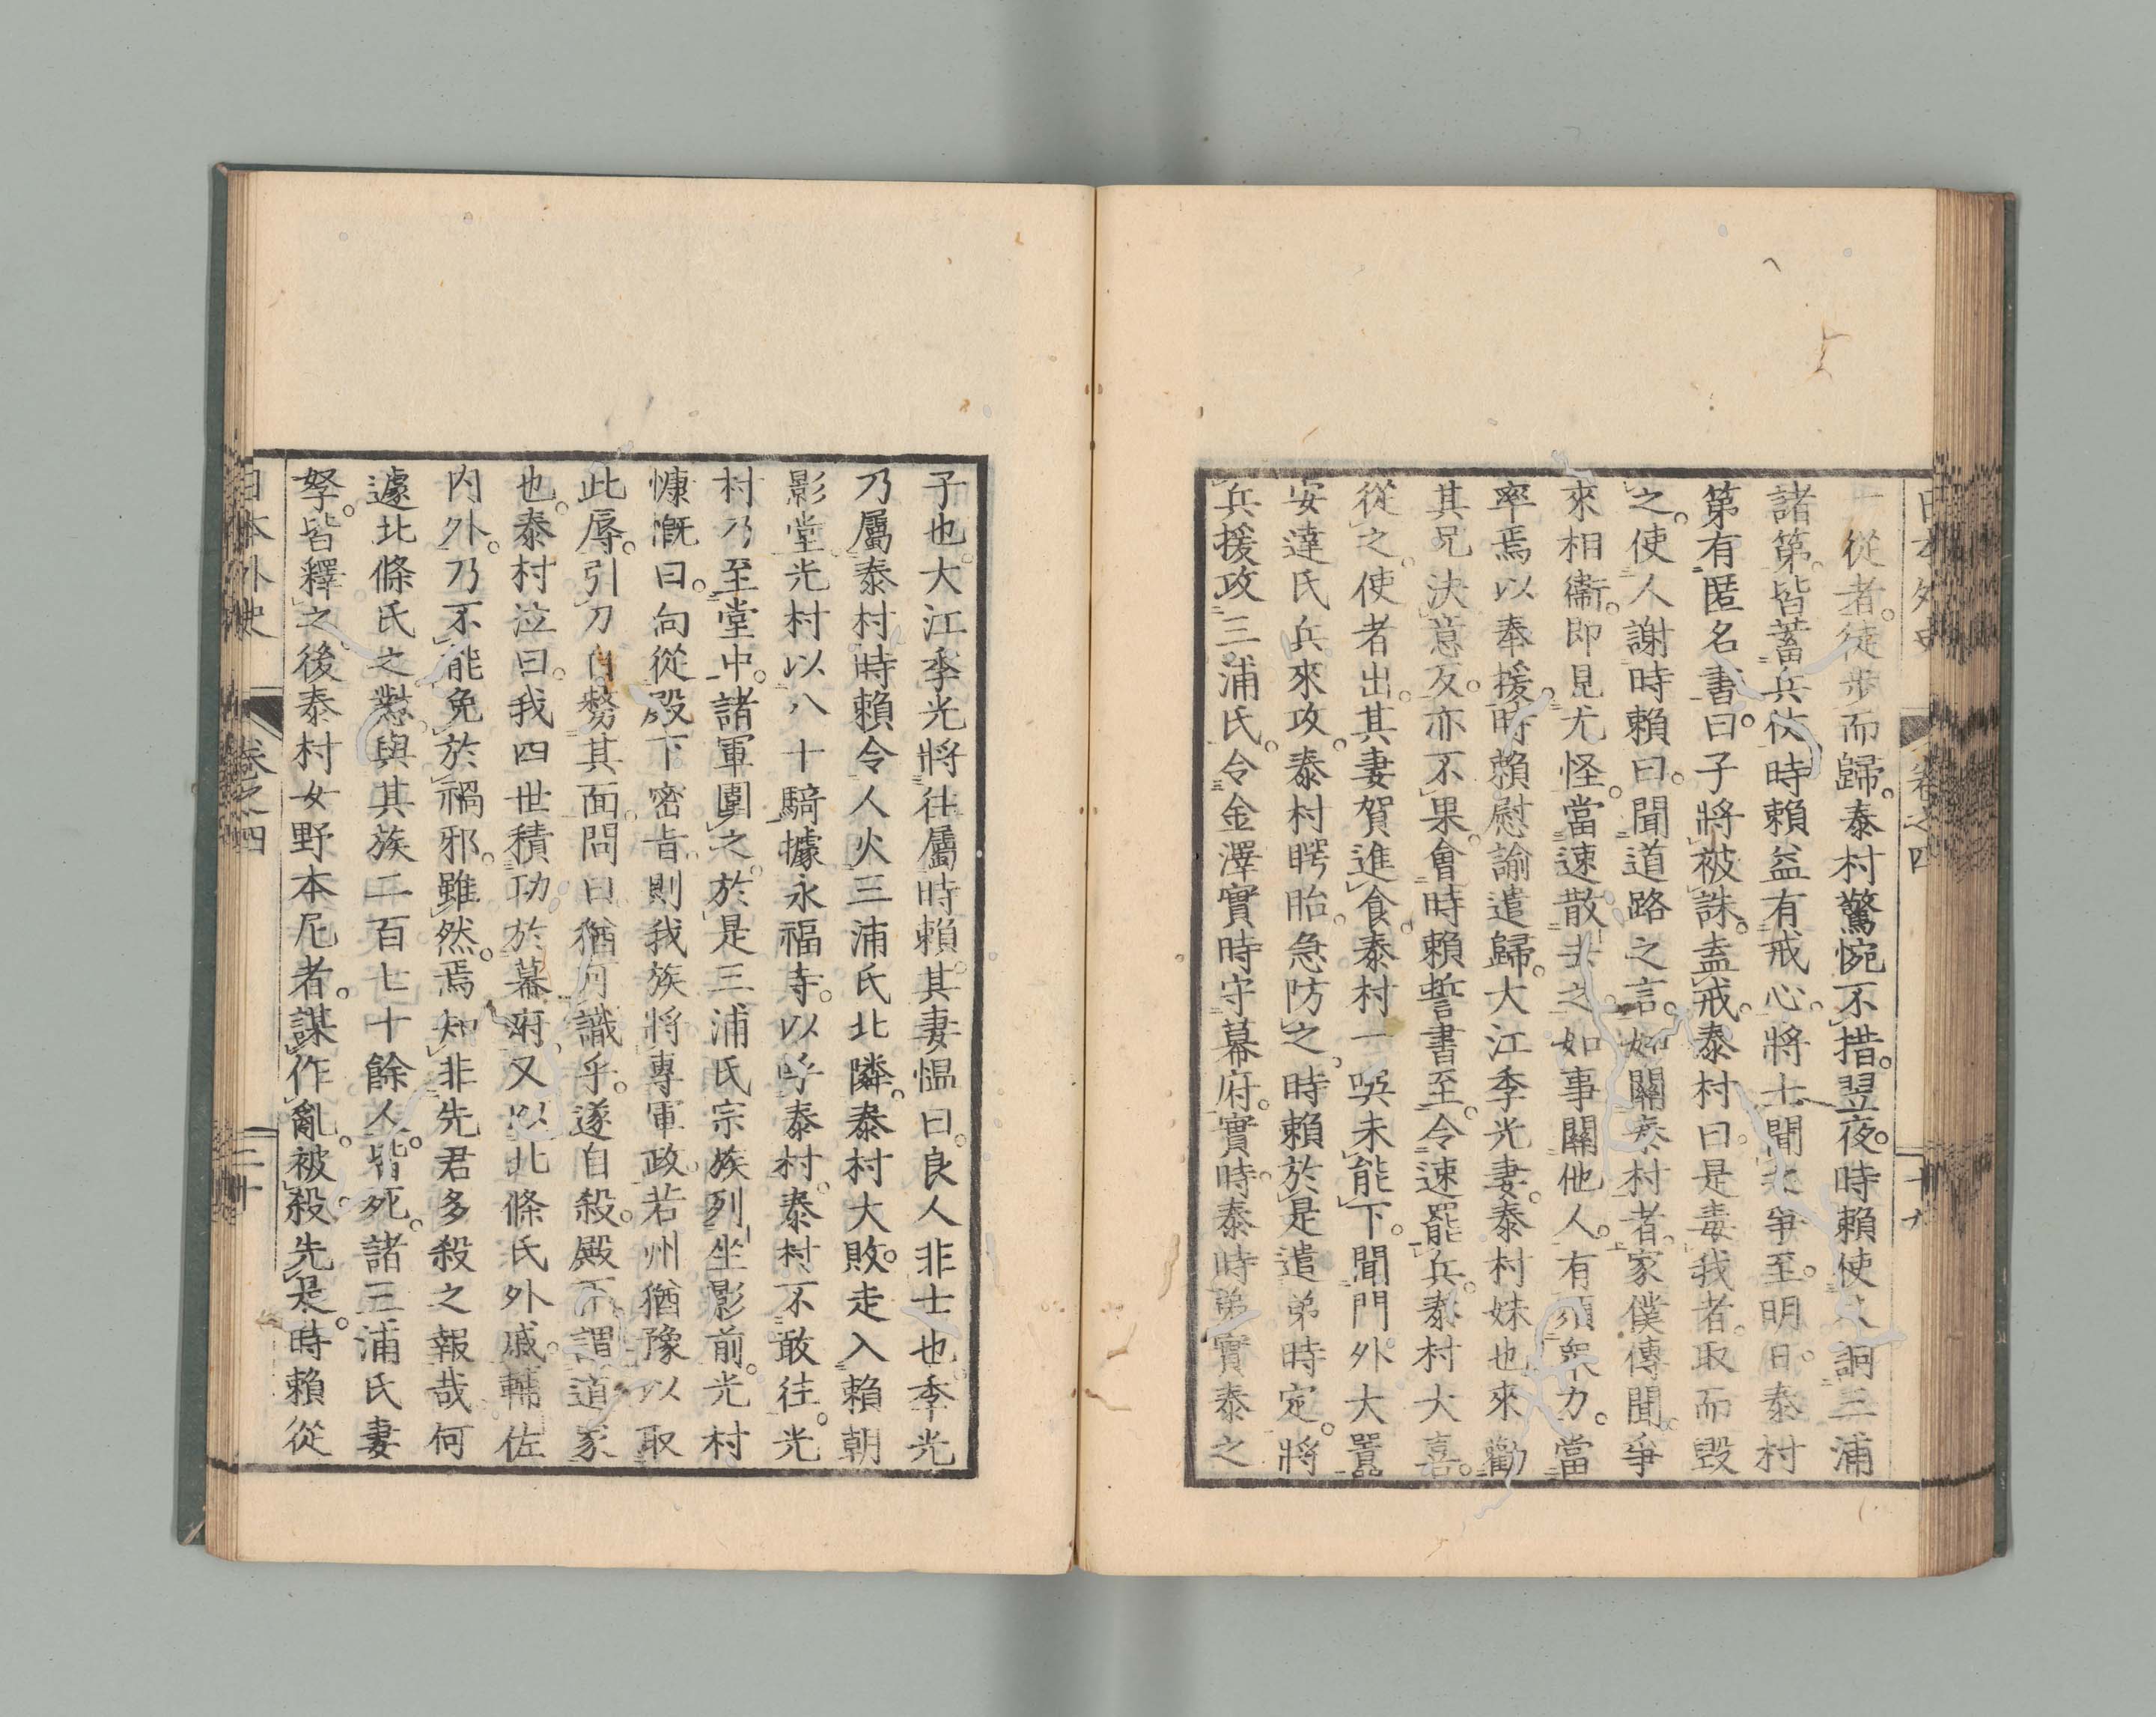 日本外史 卷之四 十九
從者。徒歩而歸。泰村驚惋不措。翌夜。時賴使人詗三浦
諸第。皆蓄兵仗。時賴益有戒心。將士聞之爭至。明日。泰村
第有匿名書。曰。子將被誅。盍戒。泰村曰。是毒我者。取而毀
之。使人謝時賴曰。聞道路之言。如關泰村者。家僕傳聞。爭
來相衞。即見尤怪。當速散去之。如事關他人。有須衆力。當
率焉以奉援。時賴慰諭遣歸。大江季光妻。泰村妹也。來勸
其兄決意反。亦不果。會時賴誓書至。令速罷兵。泰村大喜。
從之。使者出。其妻賀進食。泰村一咽未能下。聞門外大囂
安達氏兵來攻。泰村愕眙。急防之。時賴於是遣弟時定。將
兵援攻三浦氏。令金澤實時守幕府。實時。泰時弟實泰之
子也。大江季光將往屬時賴。其妻慍曰。良人非士也。季光
乃屬泰村。時賴令人火三浦氏北隣。泰村大敗。走入賴朝
影堂。光村以八十騎據永福寺。以呼泰村。泰村不敢往。光
村乃至堂中。諸軍圍之。於是三浦氏宗族列坐影前。光村
慷慨曰。向從殿下密旨。則我族將專軍政。若州猶豫以取
此辱。引刀自剺其面。問曰。猶可識乎。遂自殺。殿下謂道家
也。泰村泣曰。我四世積功於幕府。又以北條氏外戚。輔佐
内外。乃不能免於禍邪。雖然。焉知非先君多殺之報哉。何
遽北條氏之懟。與其族二百七十餘人。皆死。諸三浦氏妻
孥。皆釋之。後泰村女野本尼者。謀作亂。被殺。先是。時賴從
日本外史 卷之四 二十